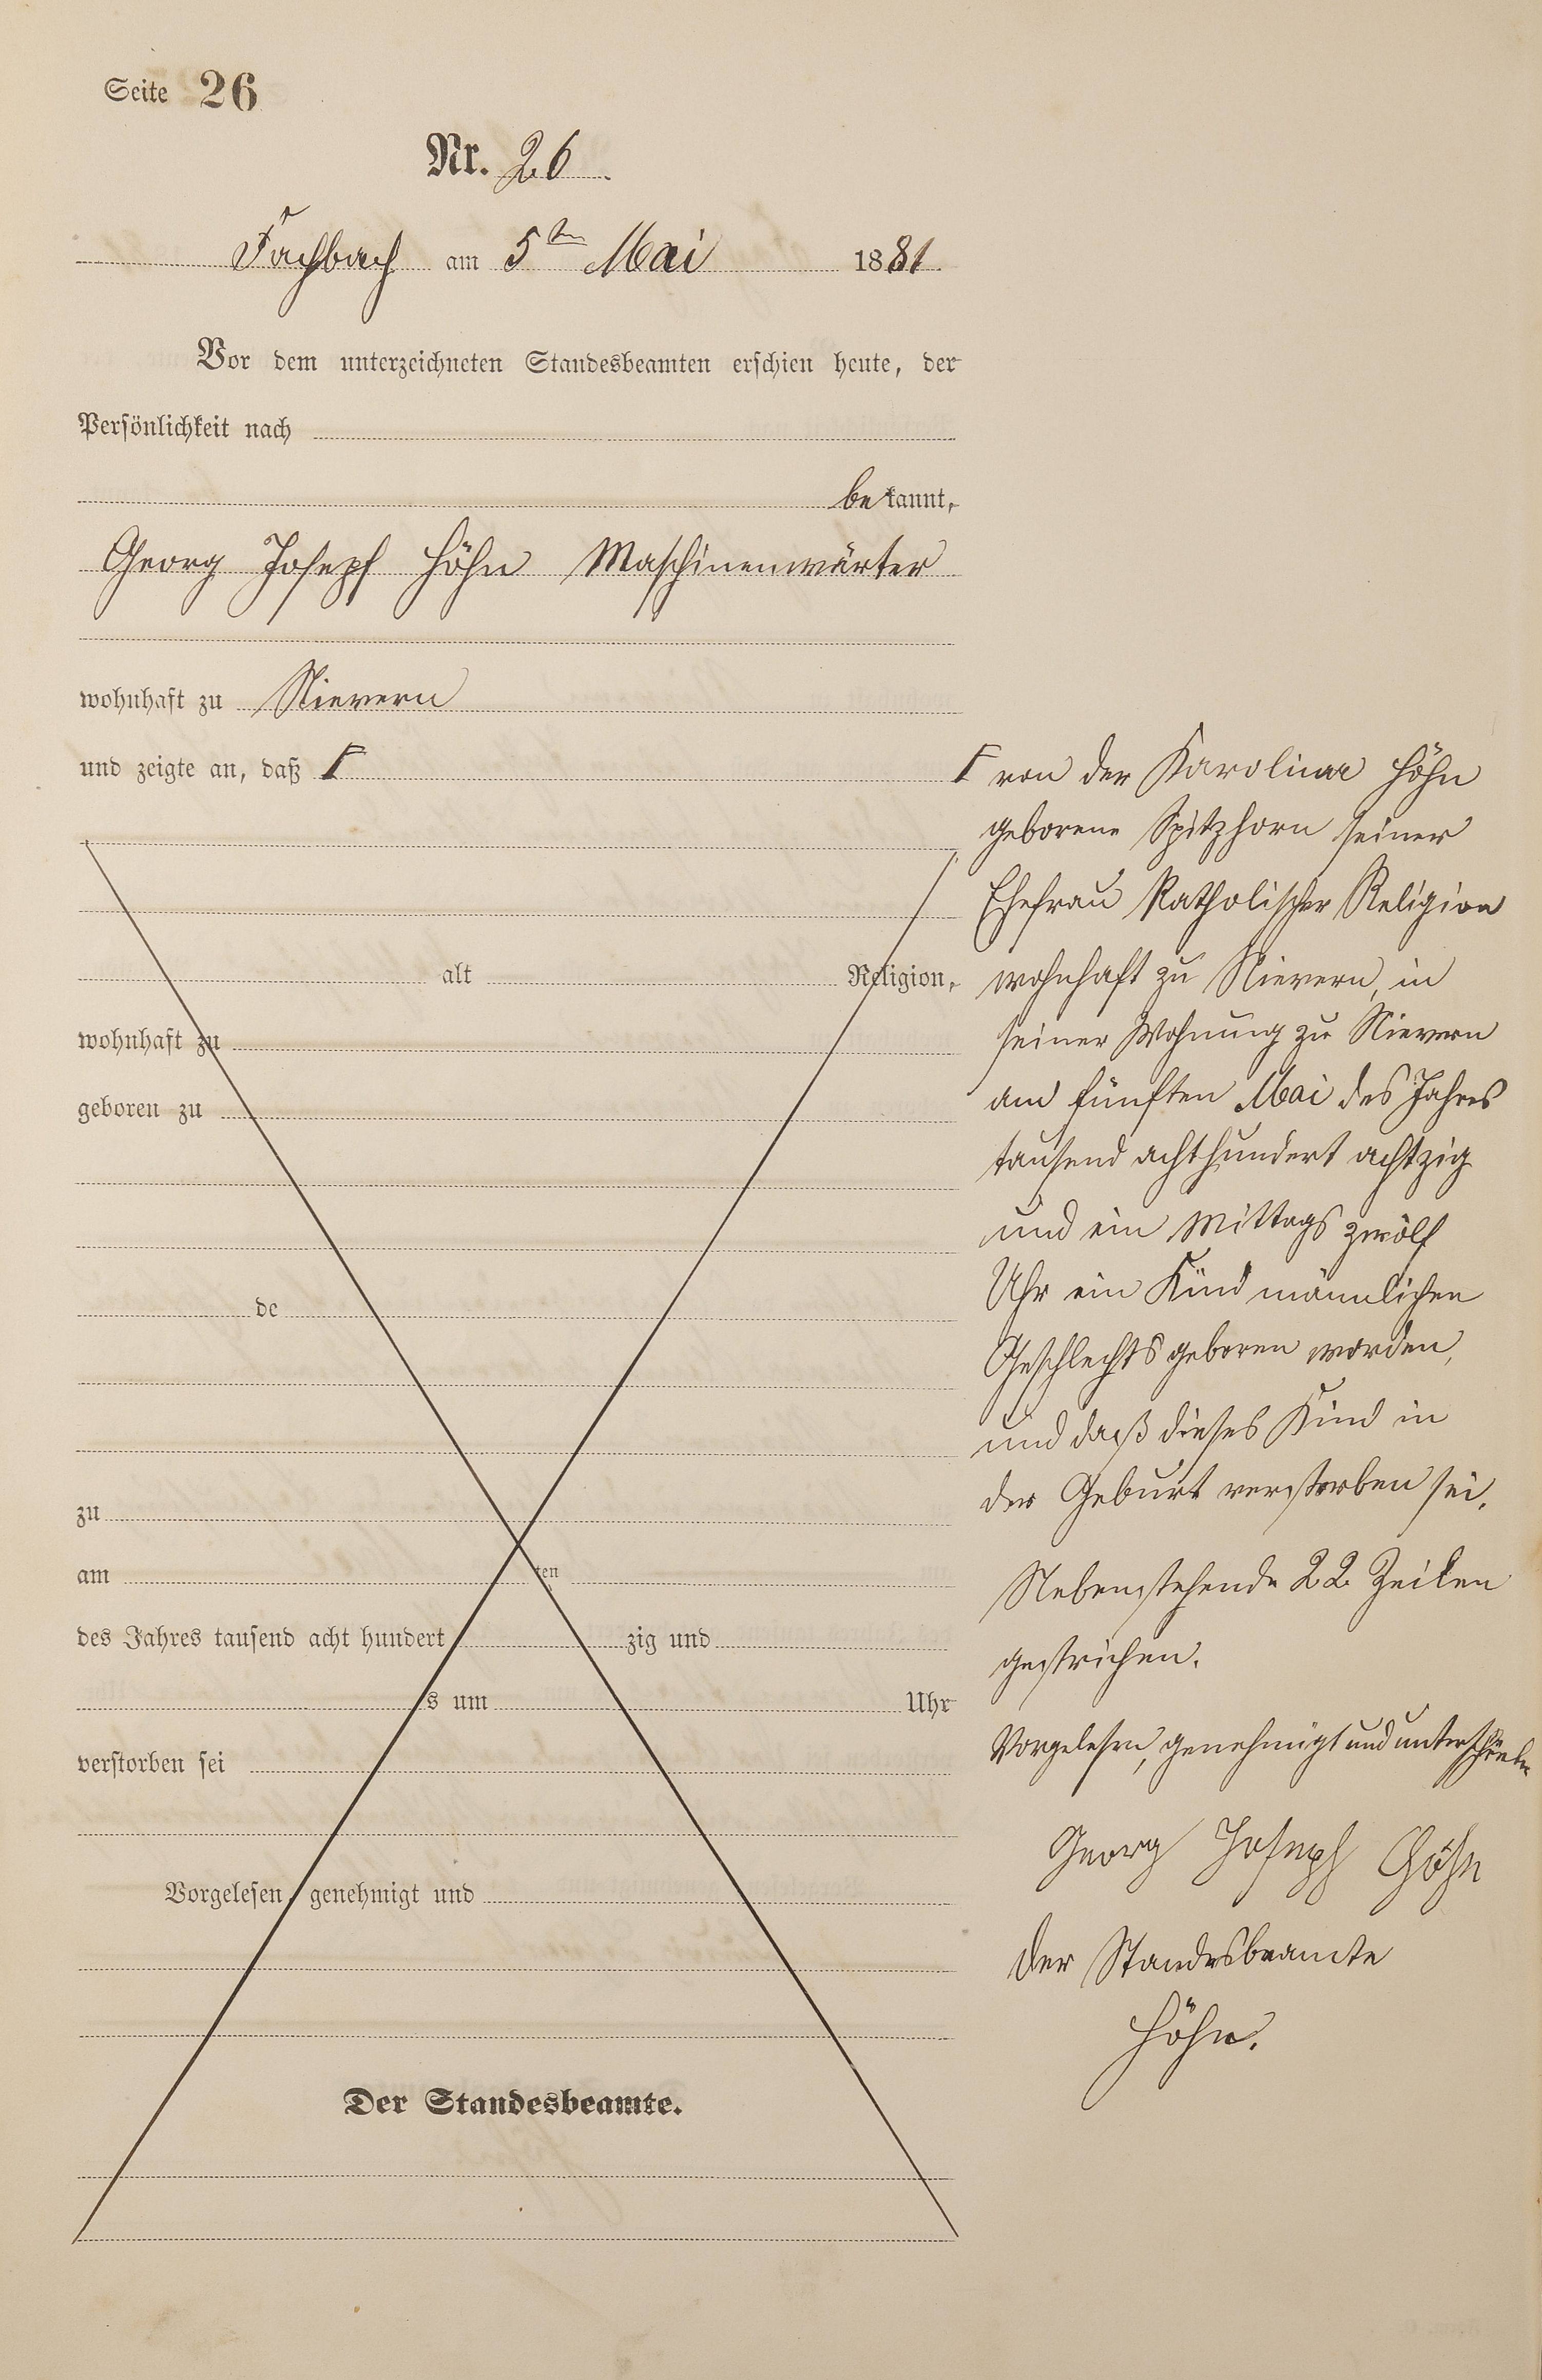 Seite 26
Nr. 26.
Fachbach am 5ten Mai 1881.
Vor dem unterzeichneten Standesbeamten erschien heute, der
Persönlichkeit nach
bekannt,
Georg Joseph Höhn Maschinenwärter
wohnhaft zu Nievern
und zeigte an, daß Γ
alt Religion,
wohnhaft zu
geboren zu
de
zu
am ten
des Jahres tausend acht hundert zig und
s um Uhr
verstorben sei
Vorgelesen, genehmigt und
Der Standesbeamte.
Γ von der Karolina Höhn
geborene Spitzhorn seiner
Ehefrau Katholischer Religion
wohnhaft zu Nievern, in
seiner Wohnung zu Nievern
am fünften Mai des Jahres
tausend achthundert achtzig
und ein Mittags zwölf
Uhr ein Kind männlichen
Geschlechts geboren worden,
und daß dieses Kind in
der Geburt verstorben sei.
Nebenstehende 22 Zeilen
gestrichen.
Vorgelesen, genehmigt und unterschrieben
Georg Joseph Höhn
Der Standesbeamte
Höhn.